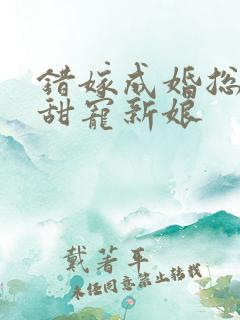 錯嫁成婚总
甜寵新娘
戴著平
未经同意禁止转载